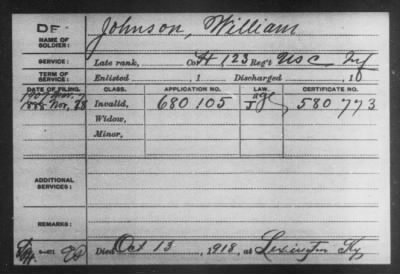 DE
Johnson, William
NAME OF SOLDIER:
SERVICE: Late rank, Co. H 123 Reg't U S C Inf
TERM OF SERVICE: Enlisted , 1 Discharged , 1
DATE OF FILING. CLASS. APPLICATION NO. LAW. CERTIFICATE NO.
1907 Mar. age
1888 Nov. 28 Invalid, 680 105 J 580 773
Widow,
Minor,
ADDITIONAL SERVICES:
REMARKS:
Died Oct 13, 1918, at Lexington Ky